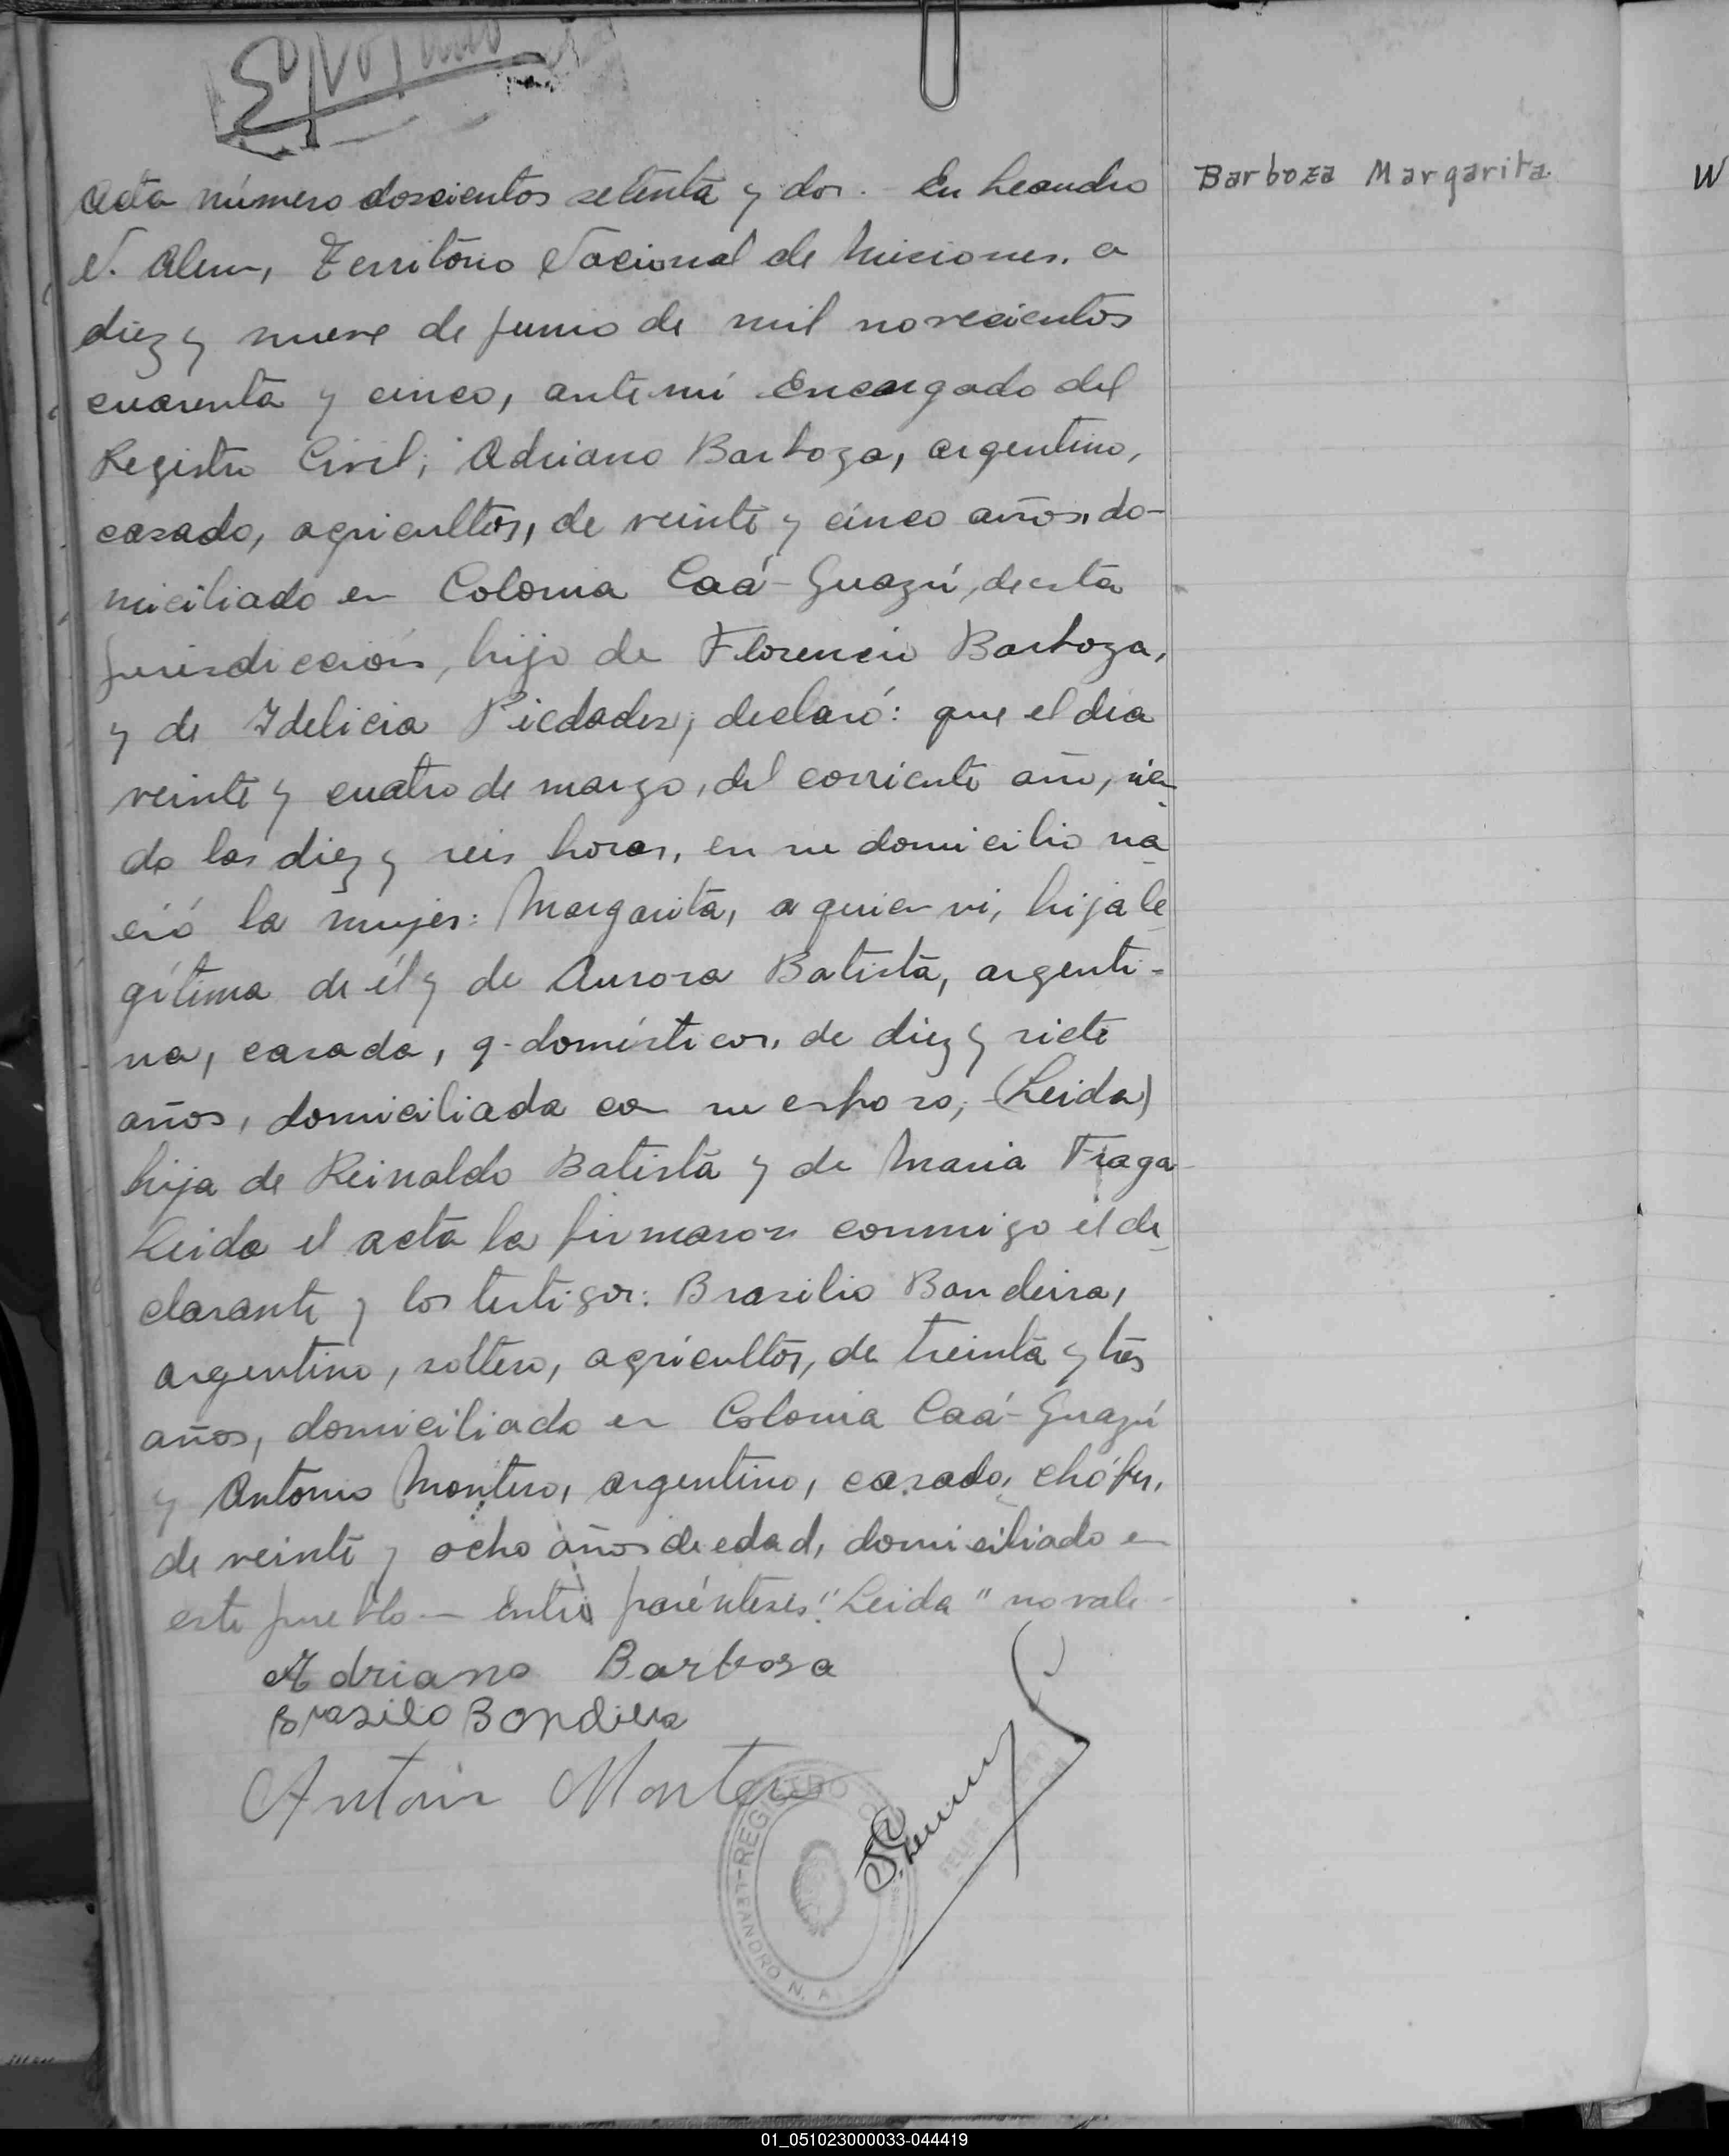 Acta número doscientos setenta y dos. - En Leandro
N. Alem, Territorio Nacional de Misiones, a
diez y nueve de junio de mil novecientos
cuarenta y cinco, ante mí Encargado del
Registro Civil; Adriano Barboza, argentino,
casado, agricultor, de veinte y cinco años, do-
miciliado en Colonia Caá-Guazú, de esta
jurisdicción, hijo de Florencio Barboza,
y de Idelicia Piedades; declaró: que el día
veinte y cuatro de marzo, del corriente año, sien
do las diez y seis horas, en su domicilio na
ció la mujer: Margarita, a quien vi, hija le
gítima de él y de Aurora Batista, argenti-
na, casada, q. domésticos, de diez y siete
años, domiciliada con su esposo; (Leida)
hija de Reinaldo Batista y de Maria Fraga
Leida el acta la firmaron conmigo el de
clarante y los testigos: Brasilio Bandeira,
argentino, soltero, agricultor, de treinta y tres
años, domiciliado en Colonia Caá-Guazú
y Antonio Montero, argentino, casado, chófer,
de veinte y ocho años de edad, domiciliado en
este pueblo - Entre paréntesis: "Leida" no vale -
Adriano Barbosa
Brasilo Bandiera
Antonio Montero
Barboza Margarita
W
REGISTRO
LEANDRO N. A
FELIPE
01_051023000033-044419